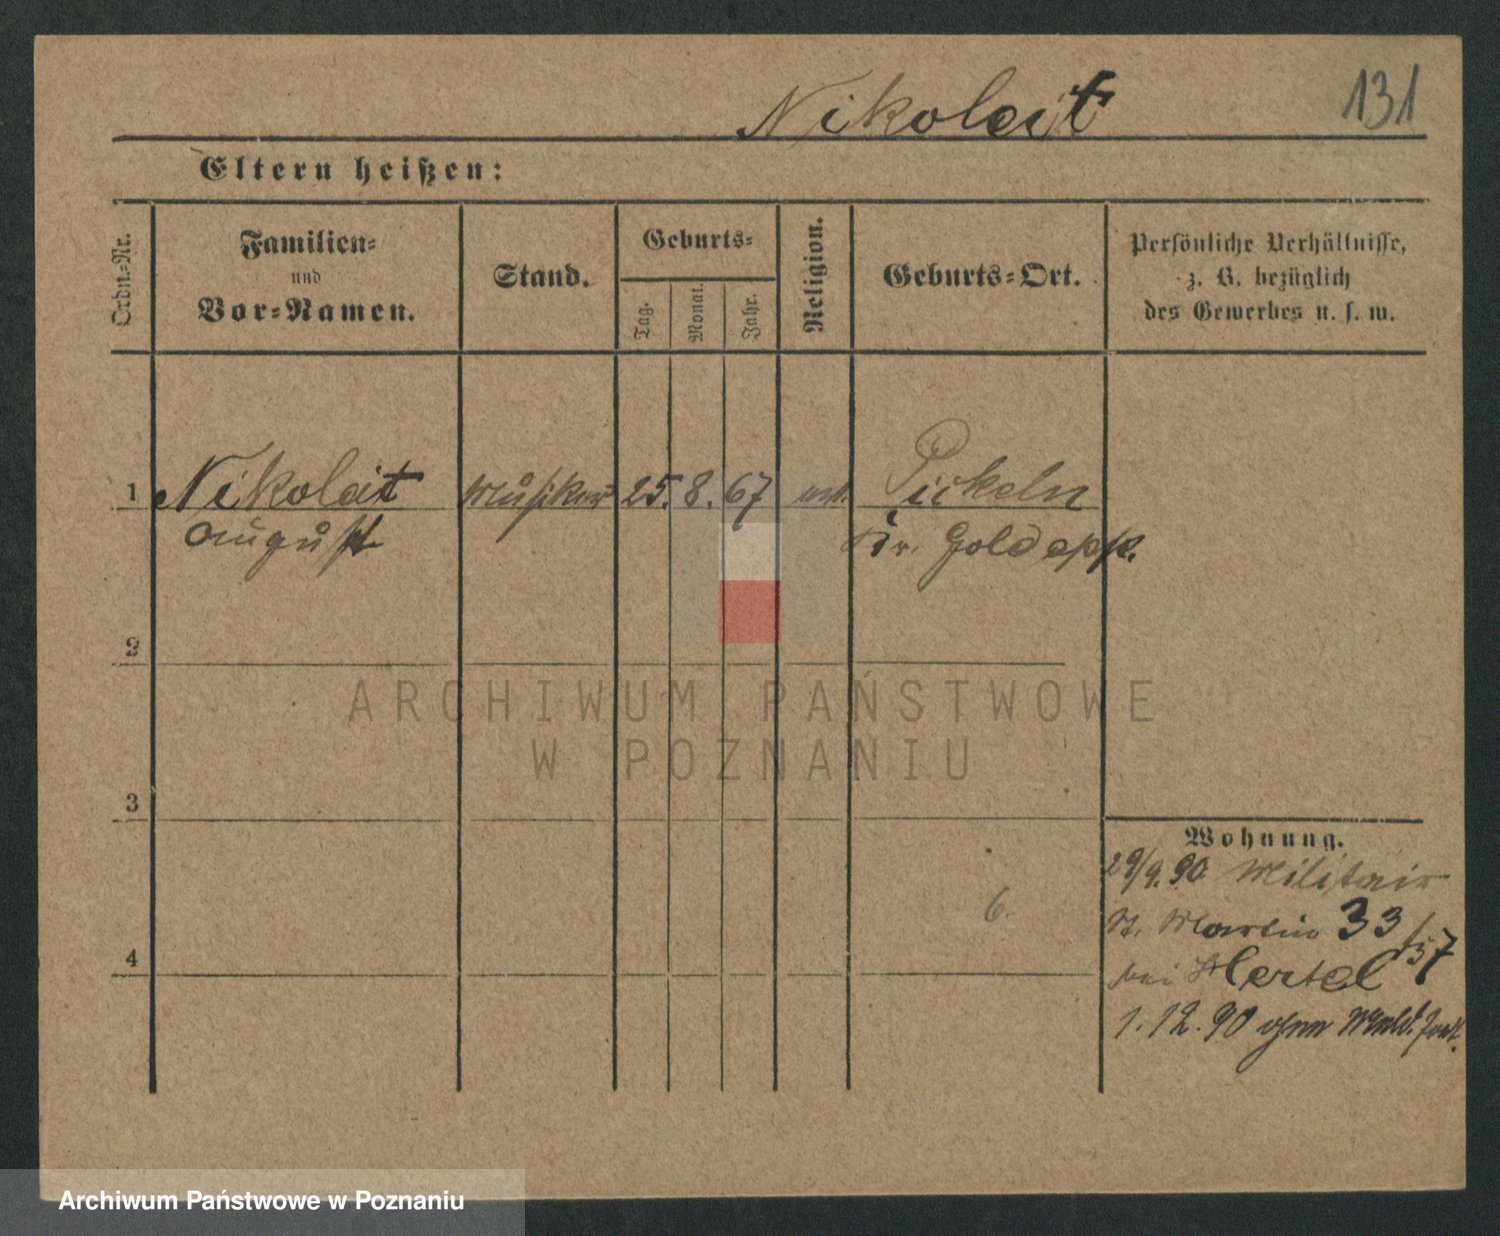 Nikoleit
131
Eltern heißen:
Ordn.-Nr.
Familien-
und
Vor-Namen.
Stand.
Geburts-
Tag.
Monat.
Jahr.
Religion.
Geburts-Ort.
Persönliche Verhältnisse,
z. B. bezüglich
des Gewerbes u. s. w.
1
Nikoleit
August
Musiker
25.
8.
67
Pickeln
Kr. Goldapp.
2
3
4
6.
Wohnung.
29/9.90 Militair
St. Martin 33/57
bei Hertel
1.12.90 ohne
ARCHIWUM PAŃSTWOWE
W POZNANIU
Archiwum Państwowe w Poznaniu